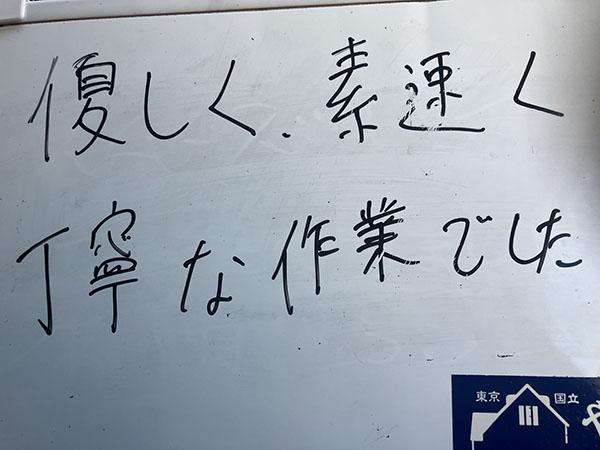 優しく、素速く
丁寧な作業でした
東京 国立
や